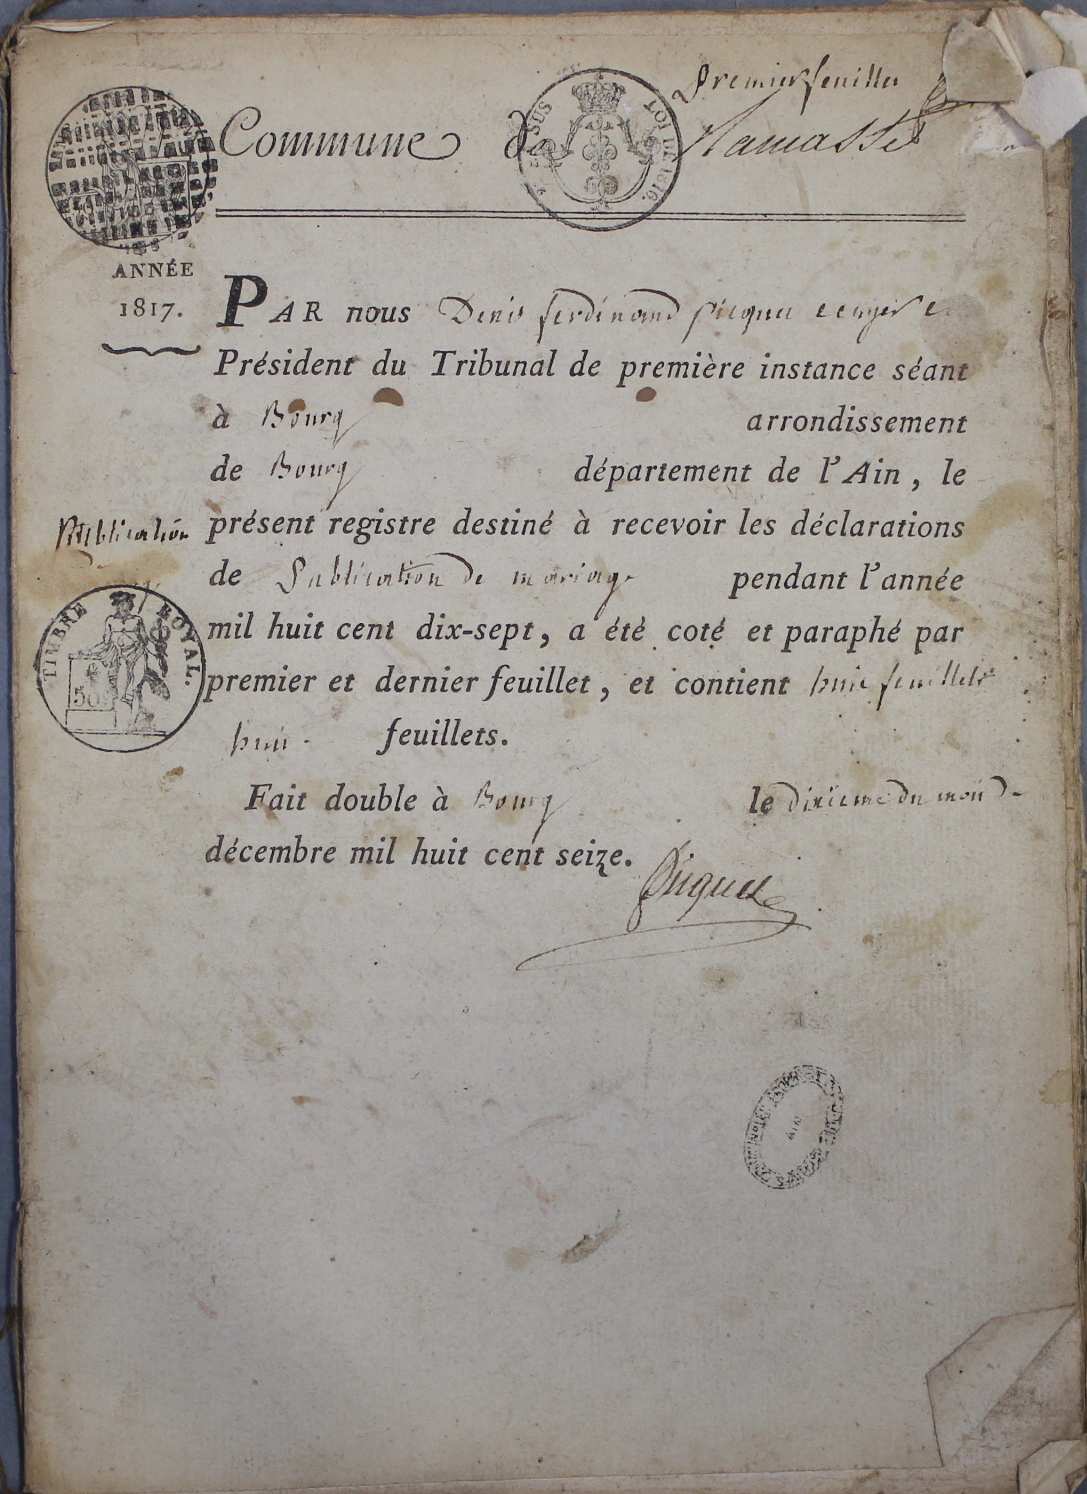 Premier feuillet
Commune de Ramasse
EN SUS
LOI DE 1816.
ANNÉE
1817.
PAR nous Denis ferdinand picquet ecuyer
Président du Tribunal de première instance séant
à Bourg arrondissement
de Bourg département de l'Ain, le
Publication
présent registre destiné à recevoir les déclarations
de Publication de mariage pendant l'année
TIMBRE ROYAL.
50
mil huit cent dix-sept, a été coté et paraphé par
premier et dernier feuillet, et contient huit feuillets
huit feuillets.
Fait double à Bourg le dixieme du mois de
décembre mil huit cent seize.
Picquet
AIN